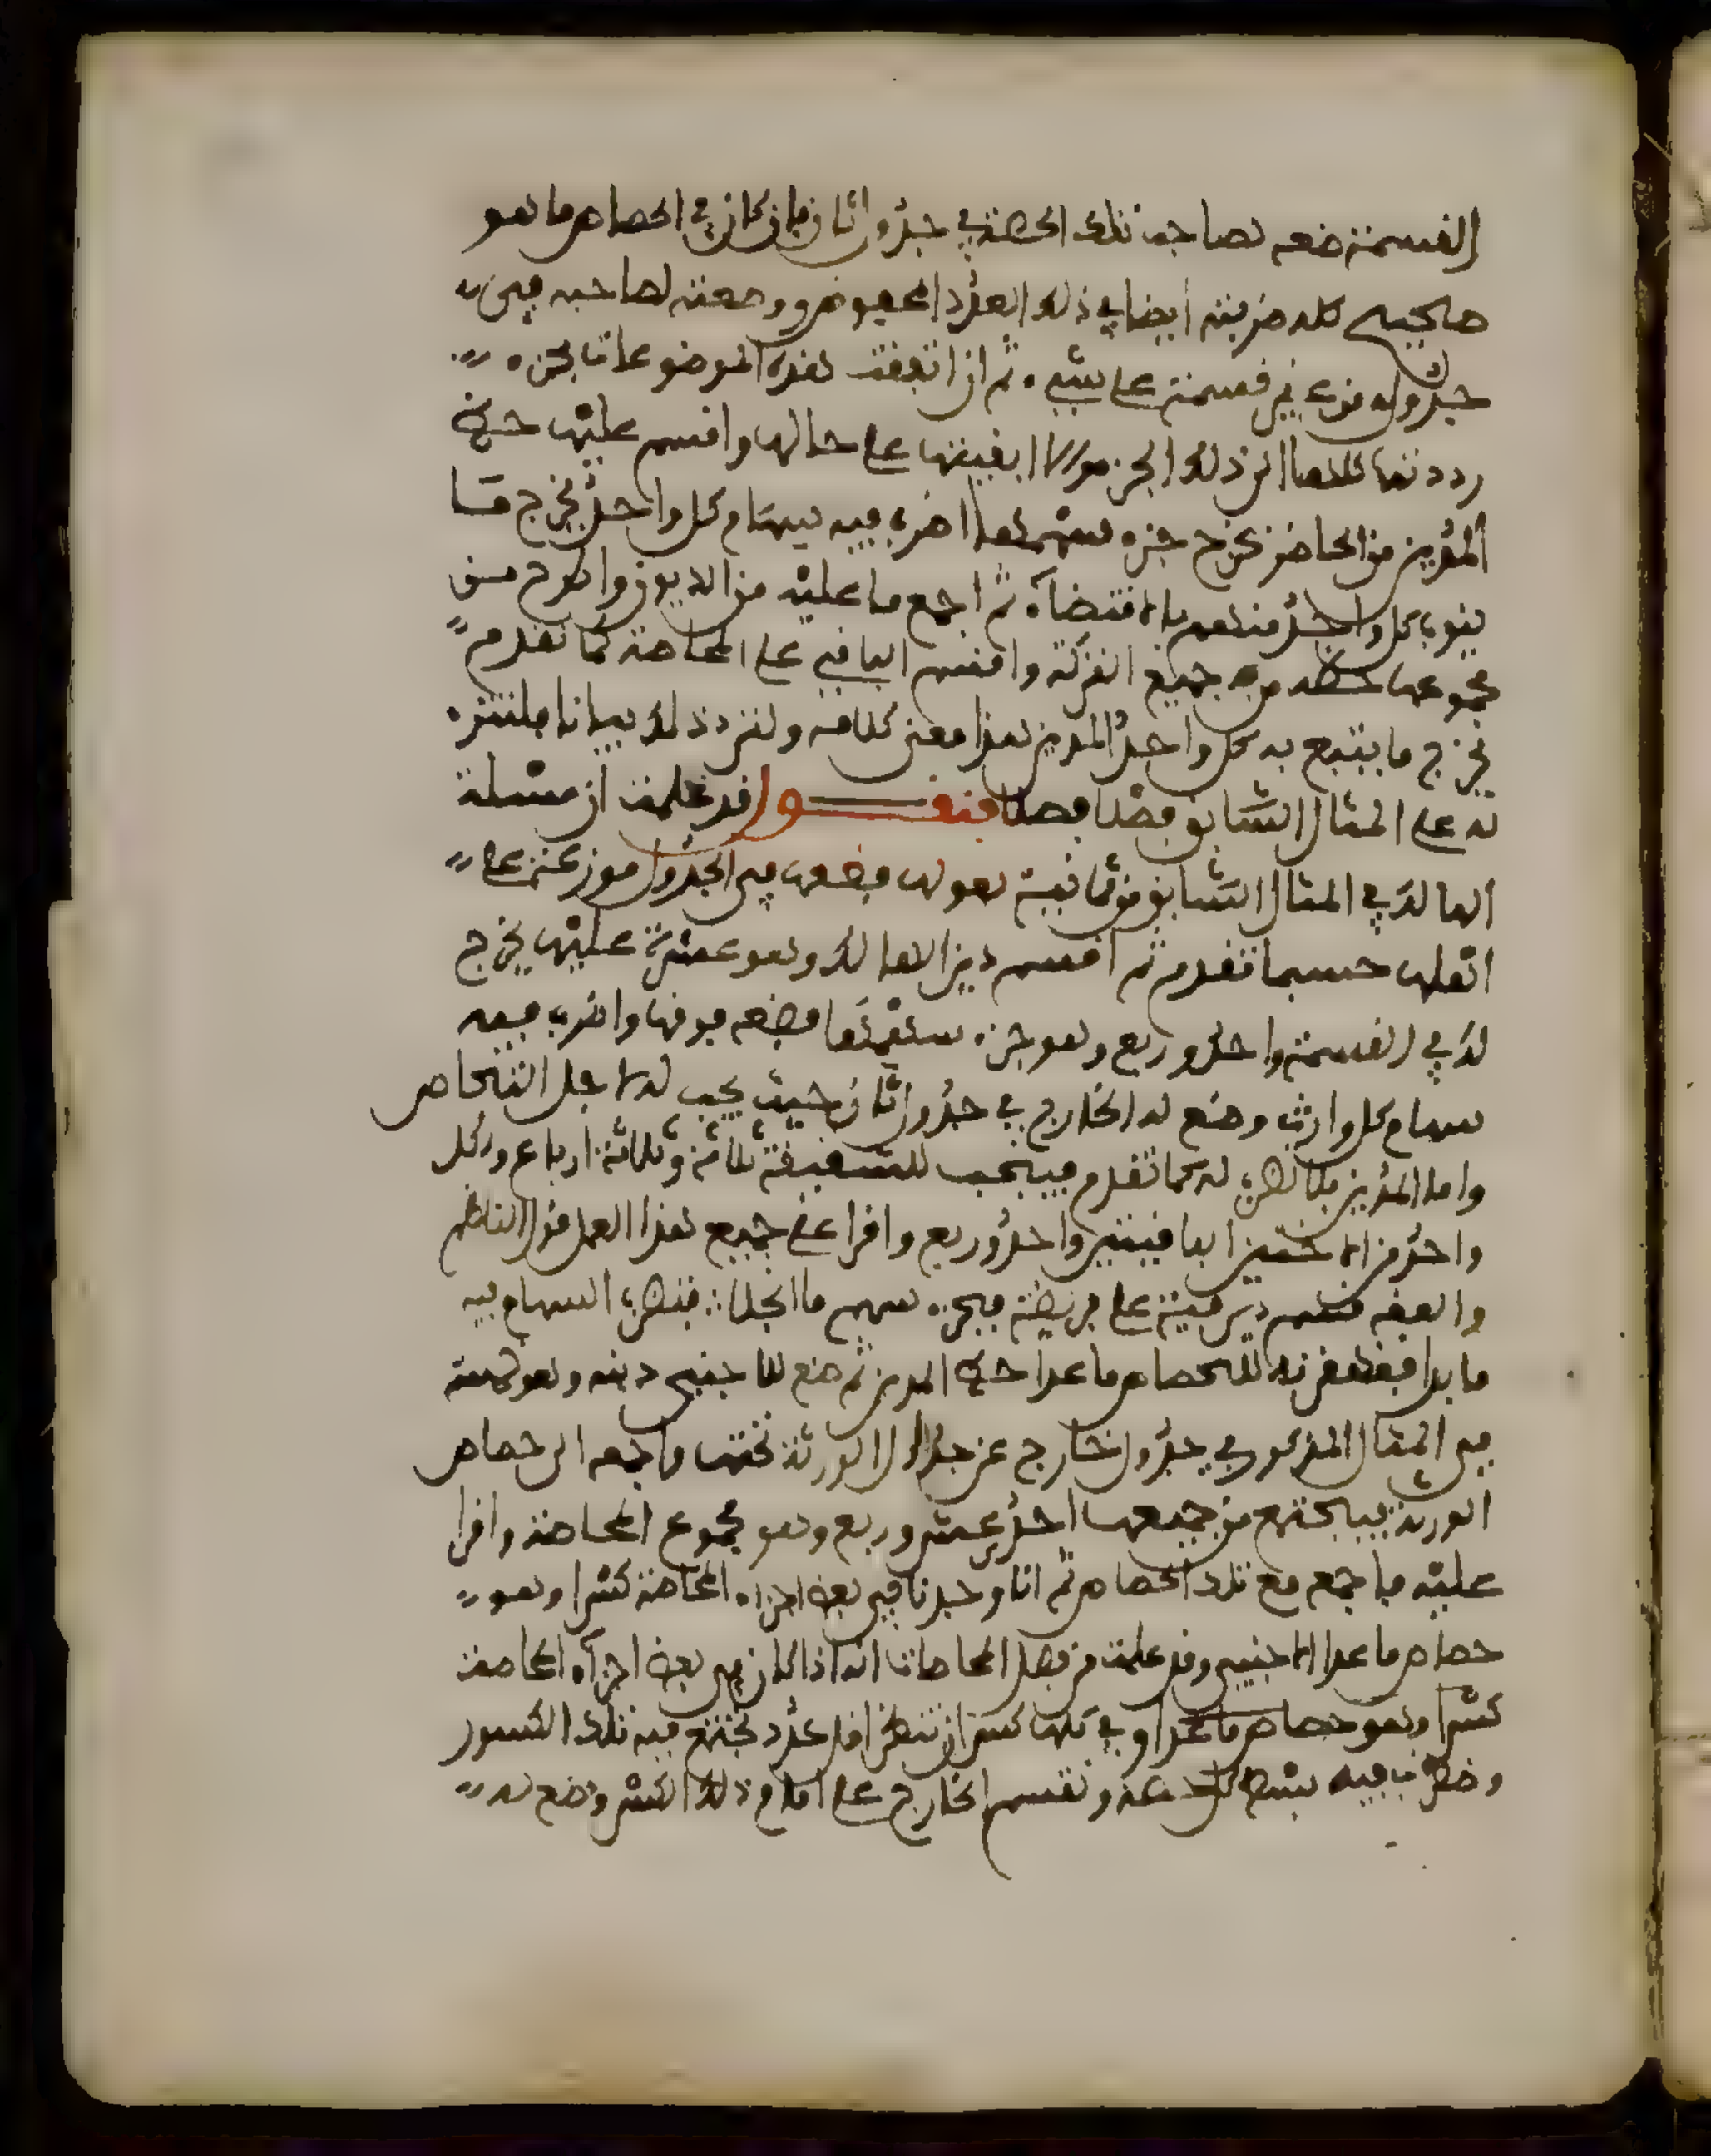 القسمة ضعه لصاحب تلك الحصة في جدول ثان فإن كان في الحصاص ما هو
صحيح كله ضربته أيضا في ذلك العدد المحفوظ ووضعته لصاحبه في
جدوله من غير قسمة على شيء ثم ان اتفقت هذه الموضوعات بجزء
رددتها كلها الى ذلك الجزء والا ابقيتها على حالها واقسم عليها حظ
المدين من الحاضر يخرج جزء سهمها اضرب فيه سهام كل واحد يخرج ما
ينوب كل واحد منهم بالاقتضاء ثم اجمع ما عليه من الديون واطرح من
مجموعها حظه من جميع التركة واقسم الباقي على المحاصة كما تقدم
يخرج ما يتبع به كل واحد المدين هذا معنى كلامه ولنزد ذلك بيانا بلنتنزه
له على المثال السابق فصلا فصلا فنقول قد علمت ان مسئلة
الهالك في المثال السابق من ثمانية بعولها فضعها في الجدول موزعة على
اهلها حسبما تقدم ثم اقسم دين الهالك وهو عشرة عليها يخرج
لك في القسمة واحد وربع وهو جزء سهمها فضعه فوقها واضرب فيه
سهام كل وارث وضع له الخارج في جدول ثان حيث يجب له لاجل التحاصص
واما المدين فلا تضرب له كما تقدم فيجب للشقيقة ثلاثة وثلاثة ارباع ولكل
واحد من الاختين الباقيتين واحد وربع واقرأ على جميع هذا العمل قول الناظم
والعقه قسم دين ميته على فريضة فجزء سهم ما انجلا فتضرب السهام فيه
ما بدا فهذه للحصاص ما عدا حظ المدين ثم ضع للاجنبي دينه وهو خمسة
في المثال المذكور في جدول خارج عن جدول الورثة تحتها واجمعه الى حصاص
الورثة فيجتمع من جميعها احد عشر وربع وهو مجموع المحاصة واقرأ
عليه فاجمعه مع تلك الحصاص ثم انا وجدنا في بعض اجزاء المحاصة كسرا وهو
حصاص ما عدا الاجنبي وقد علمت من فصل المحاصات انه اذا كان في بعض اجزاء المحاصة
كسرا وهو حصاص ما عدا او في كلها كسر ان تنظر اقل عدد تجتمع فيه تلك الكسور
وتضرب فيه بسط كل حصة وتقسم الخارج على امام ذلك الكسر وتضع له